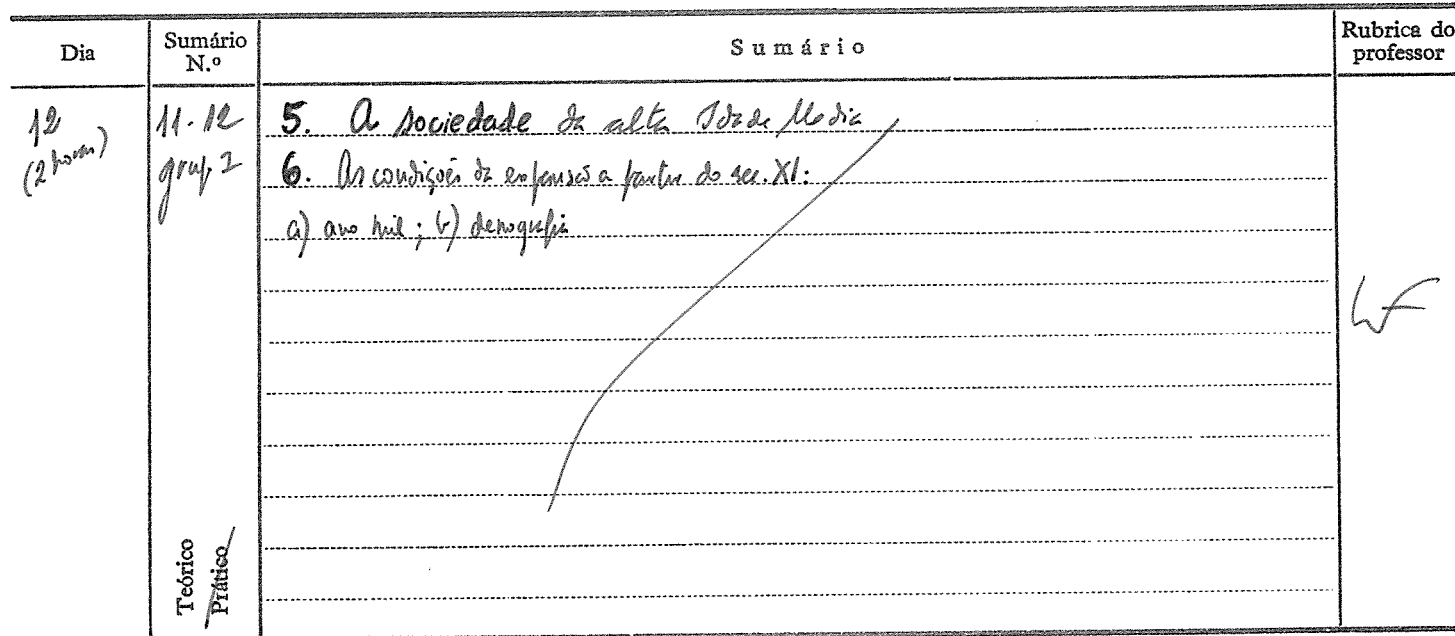 Dia
Sumário N.º
Sumário
Rubrica do professor
12
(2 horas)
11-12
grup. 2
5. A sociedade da alta Idade Media
6. As condições da expansão a partir do sec. XI:
a) ano mil; b) demografia
Teórico
Prático